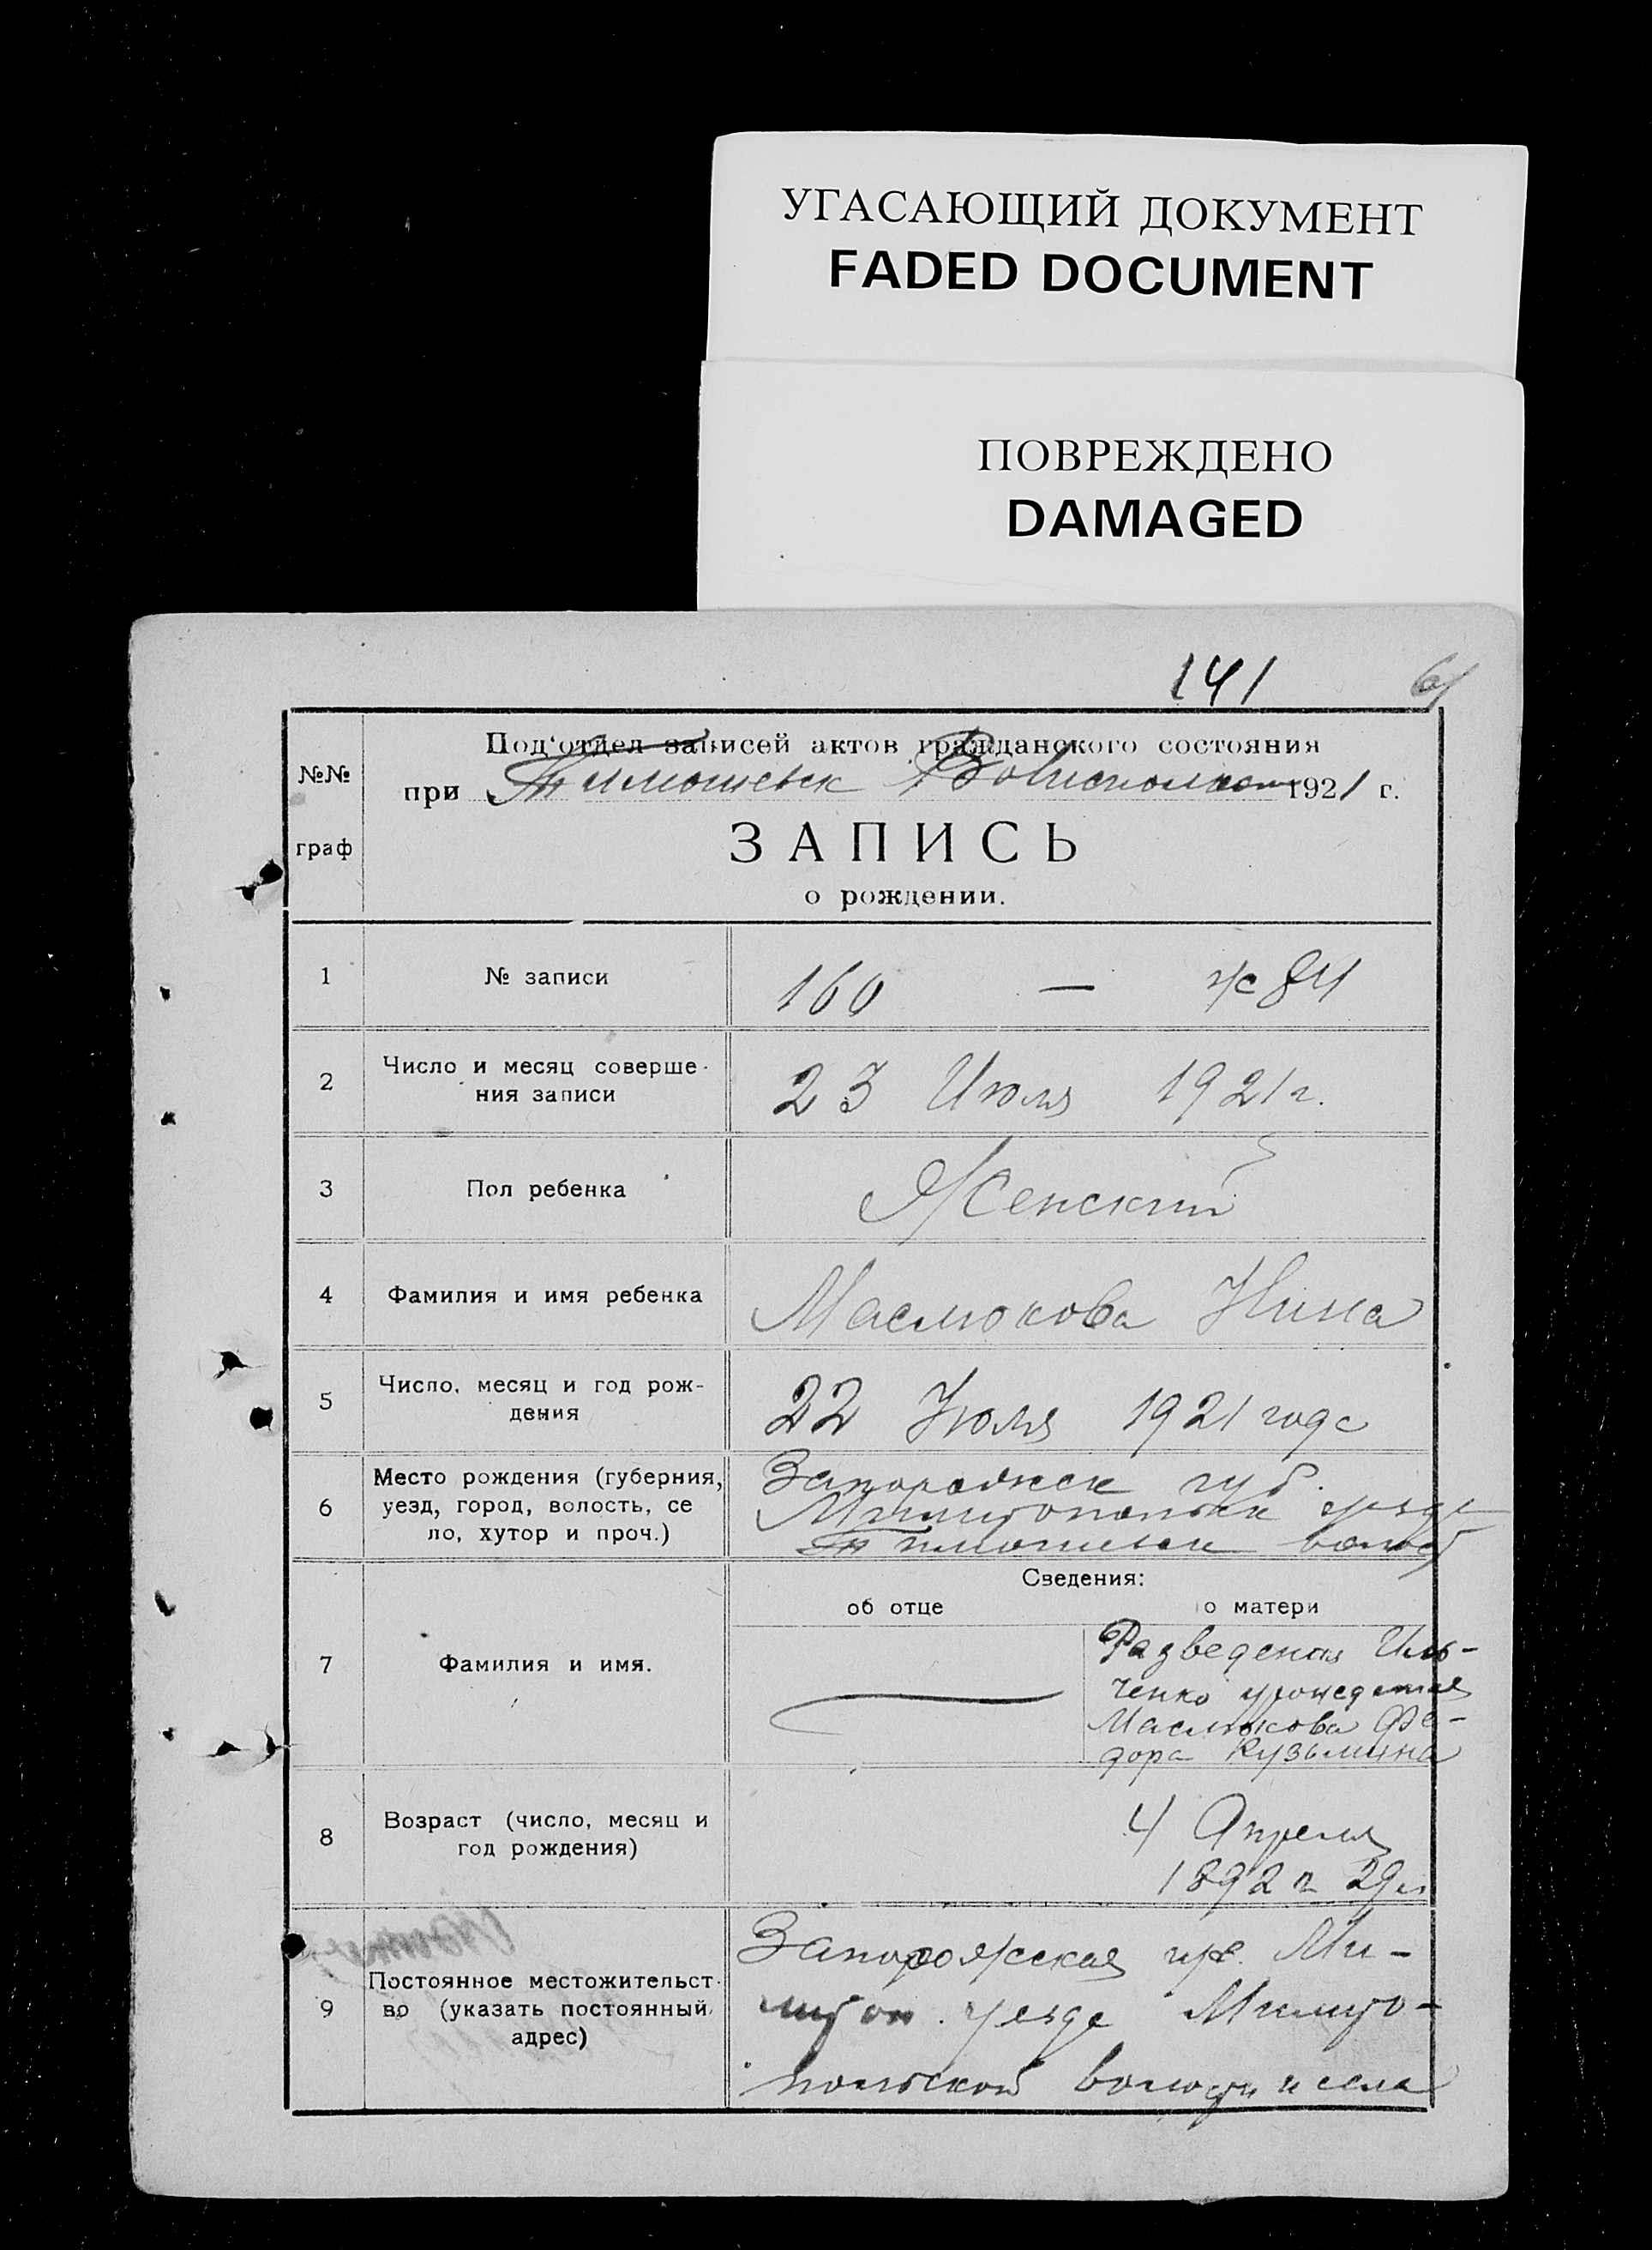 УГАСАЮЩИЙ ДОКУМЕНТ
FADED DOCUMENT
ПОВРЕЖДЕНО
DAMAGED
141
61
№№ граф
Под‘отдел записей актов гражданского состояния
при Тимошевск Волисполком 1921 г.
ЗАПИСЬ
о рождении.
1 № записи 160 — ж 84
2 Число и месяц соверше-
ния записи
23 Июля 1921 г.
3 Пол ребенка Женский
4 Фамилия и имя ребенка Маслюкова Нина
5 Число, месяц и год рож-
дения
22 Июля 1921 года
6 Место рождения (губерния,
уезд, город, волость, се
ло, хутор и проч.)
Запорожск губ.
Мелитопольск уезда
Тимошевск волост
Сведения:
об отце
о матери
7 Фамилия и имя.
Разведеная Иль-
ченко урожденная
Маслюкова Фе-
дора Кузьмина
8 Возраст (число, месяц и
год рождения)
4 Апреля
1892 г 29 л
9 Постоянное местожительст-
во (указать постоянный
адрес)
Запорожская губ. Ме-
литоп. уезда Мелито-
польской волости и села